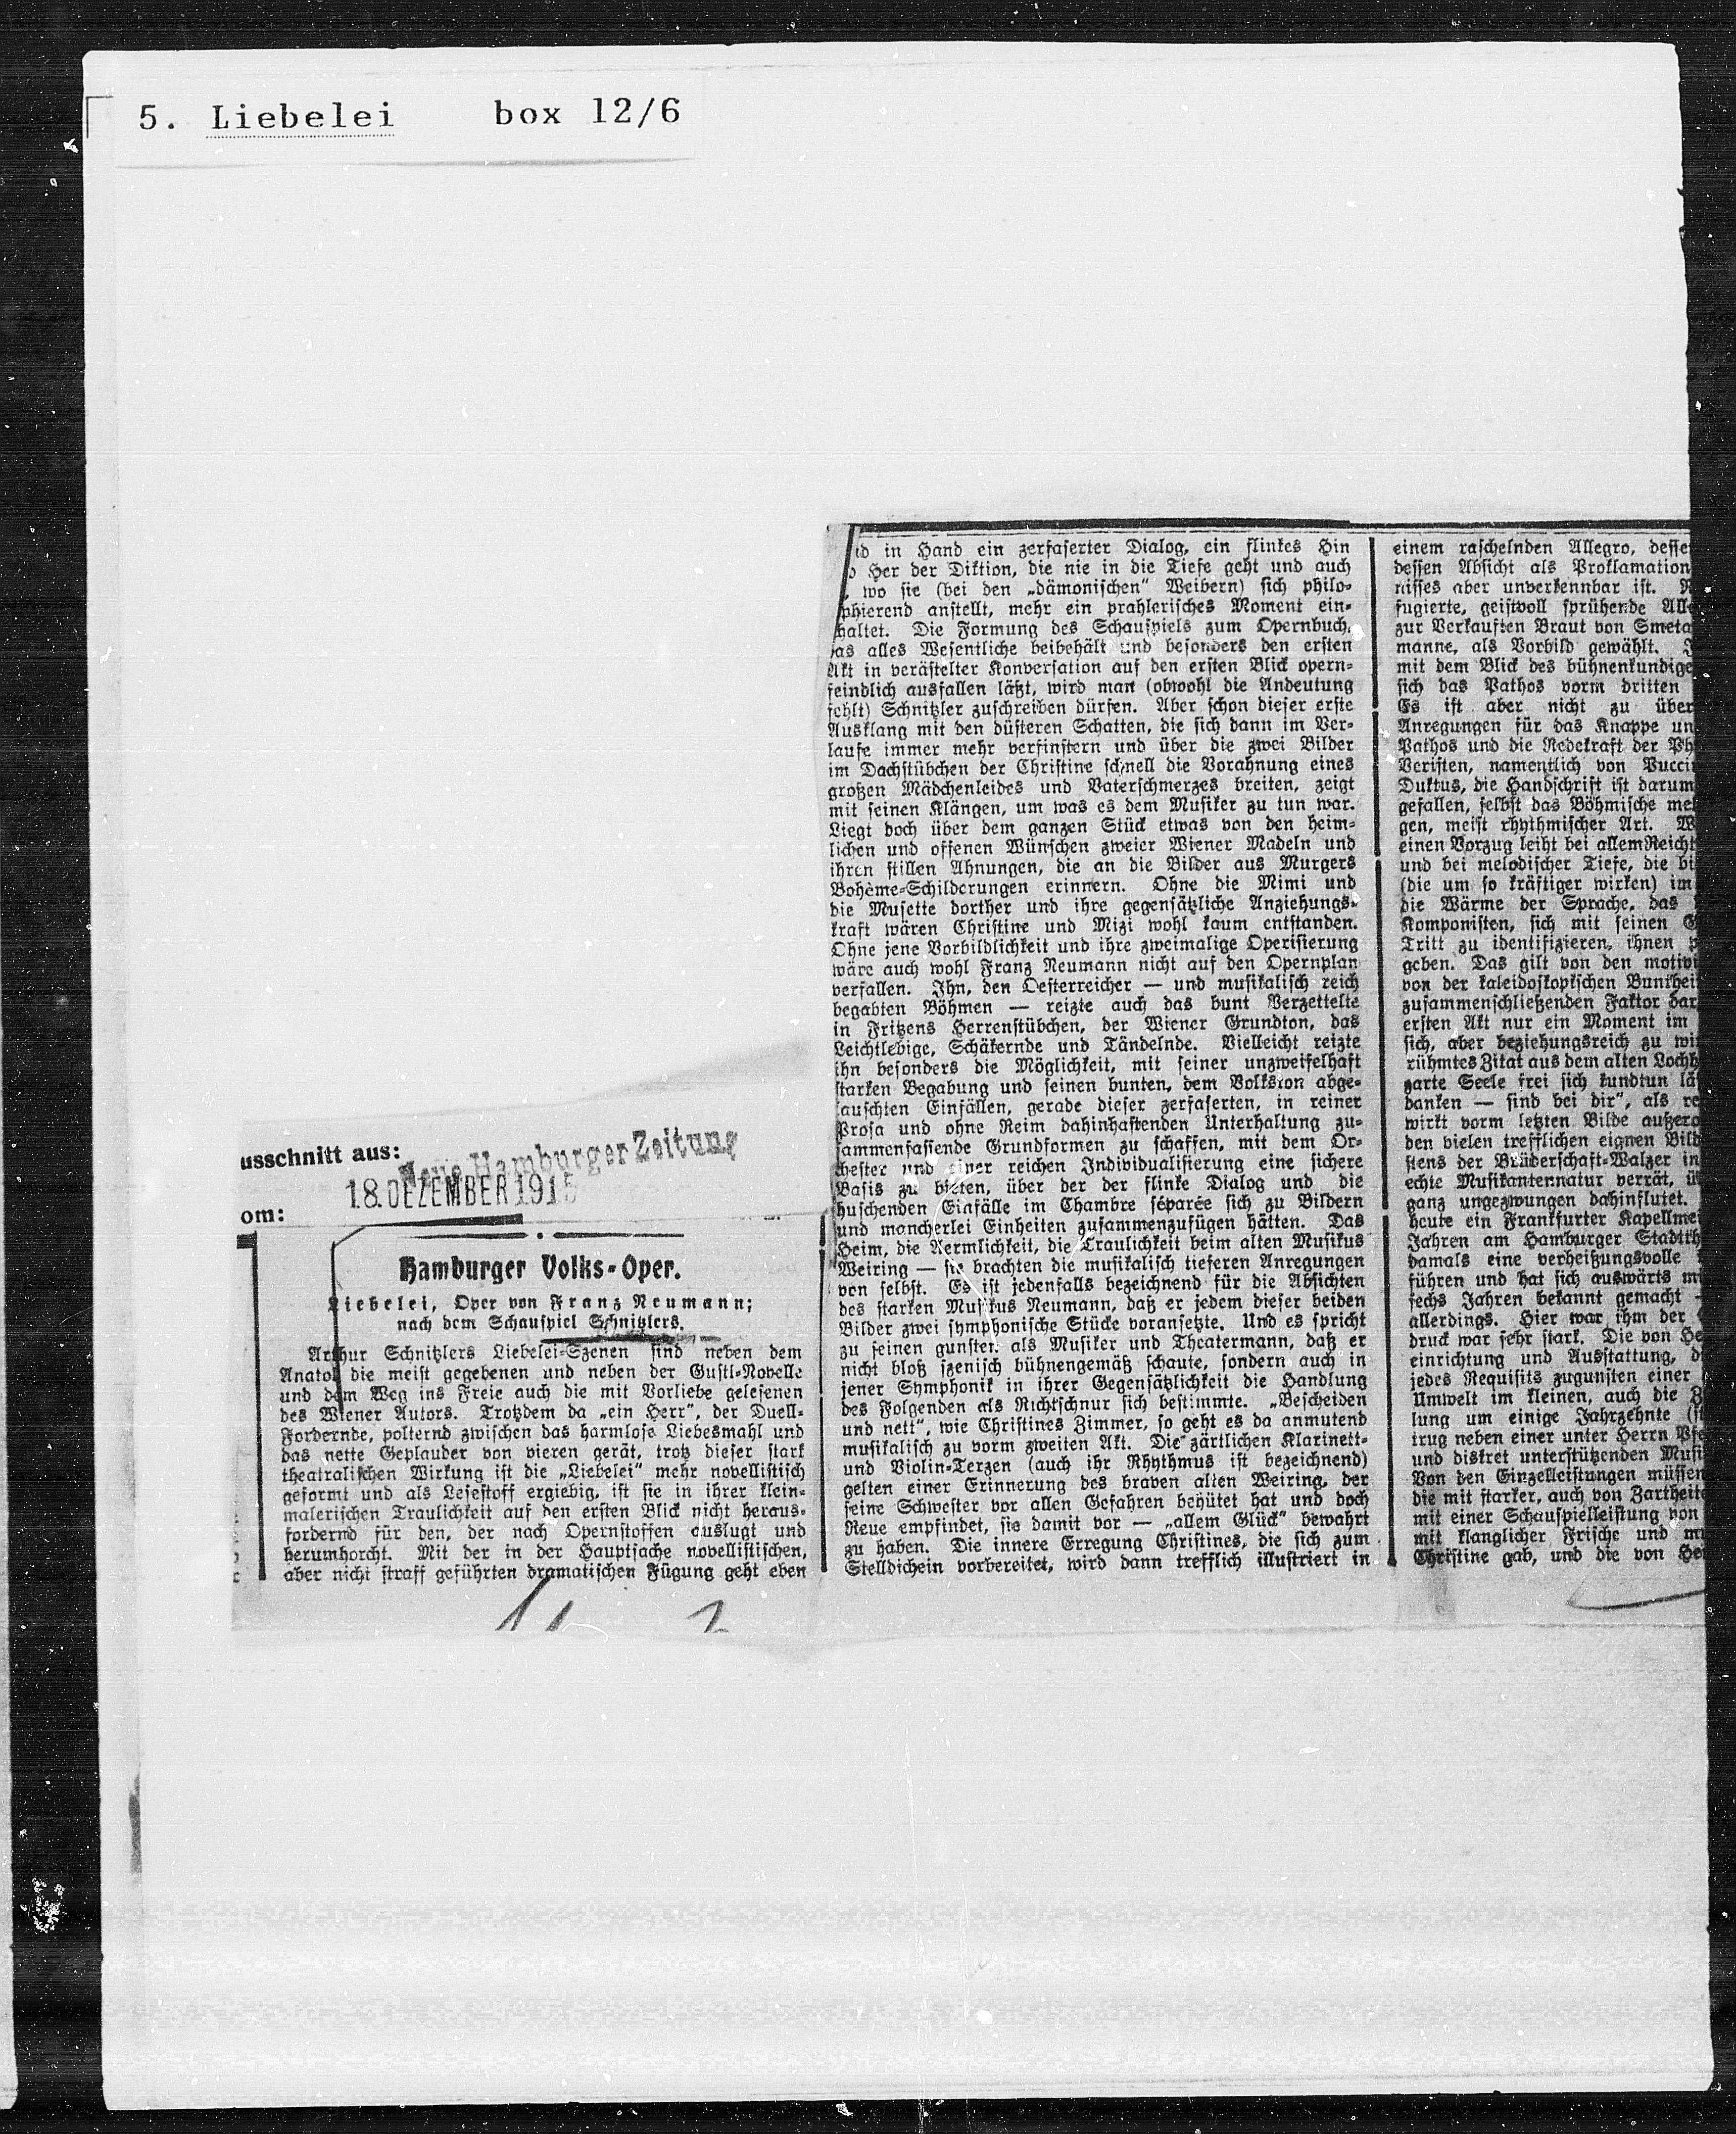 5. Liebelei box 12/6
usschnitt aus:
Neue Hamburger Zeitung
18. DEZEMBER 1915
om:
Hamburger Volks-Oper.
Liebelei, Oper von Franz Neumann;
nach dem Schauspiel Schnitzlers.
Arthur Schnitzlers Liebelei-Szenen sind neben dem
Anatol die meist gegebenen und neben der Gustl-Novelle
und dem Weg ins Freie auch die mit Vorliebe gelesenen
des Wiener Autors. Trotzdem da „ein Herr“, der Duell-
Fordernde, polternd zwischen das harmlose Liebesmahl und
das nette Geplauder von vieren gerät, trotz dieser stark
theatralischen Wirkung ist die „Liebelei“ mehr novellistisch
geformt und als Lesestoff ergiebig, ist sie in ihrer klein-
malerischen Traulichkeit auf den ersten Blick nicht heraus-
fordernd für den, der nach Opernstoffen auslugt und
herumhorcht. Mit der in der Hauptsache novellistischen,
aber nicht straff geführten dramatischen Fügung geht eben
1 1 2
d in Hand ein zerfaserter Dialog, ein flinkes Hin
Her der Diktion, die nie in die Tiefe geht und auch
, wo sie (bei den „dämonischen“ Weibern) sich philo-
phierend anstellt, mehr ein prahlerisches Moment ein-
haltet. Die Formung des Schauspiels zum Opernbuch,
as alles Wesentliche beibehält und besonders den ersten
Akt in verästelter Konversation auf den ersten Blick opern-
feindlich ausfallen läßt, wird man (obwohl die Andeutung
fehlt) Schnitzler zuschreiben dürfen. Aber schon dieser erste
Ausklang mit den düsteren Schatten, die sich dann im Ver-
laufe immer mehr verfinstern und über die zwei Bilder
im Dachstübchen der Christine schnell die Vorahnung eines
großen Mädchenleides und Vaterschmerzes breiten, zeigt
mit seinen Klängen, um was es dem Musiker zu tun war.
Liegt doch über dem ganzen Stück etwas von den heim-
lichen und offenen Wünschen zweier Wiener Madeln und
ihren stillen Ahnungen, die an die Bilder aus Murgers
Bohème-Schilderungen erinnern. Ohne die Mimi und
die Musette dorther und ihre gegensätzliche Anziehungs-
kraft wären Christine und Mizi wohl kaum entstanden.
Ohne jene Vorbildlichkeit und ihre zweimalige Operisierung
wäre auch wohl Franz Neumann nicht auf den Opernplan
verfallen. Ihn, den Oesterreicher — und musikalisch reich
begabten Böhmen — reizte auch das bunt Verzettelte
in Fritzens Herrenstübchen, der Wiener Grundton, das
Leichtlebige, Schäkernde und Tändelnde. Vielleicht reizte
ihn besonders die Möglichkeit, mit seiner unzweifelhaft
starken Begabung und seinen bunten, dem Volkston abge-
lauschten Einfällen, gerade dieser zerfaserten, in reiner
Prosa und ohne Reim dahinhastenden Unterhaltung zu-
sammenfassende Grundformen zu schaffen, mit dem Or-
chester und einer reichen Individualisierung eine sichere
Basis zu bieten, über der der flinke Dialog und die
huschenden Einfälle im Chambre séparée sich zu Bildern
und mancherlei Einheiten zusammenzufügen hätten. Das
Heim, die Aermlichkeit, die Traulichkeit beim alten Musikus
Weiring — sie brachten die musikalisch tieferen Anregungen
von selbst. Es ist jedenfalls bezeichnend für die Absichten
des starken Musikus Neumann, daß er jedem dieser beiden
Bilder zwei symphonische Stücke voransetzte. Und es spricht
zu seinen gunsten als Musiker und Theatermann, daß er
nicht bloß szenisch bühnengemäß schaute, sondern auch in
jener Symphonik in ihrer Gegensätzlichkeit die Handlung
des Folgenden als Richtschnur sich bestimmte. „Bescheiden
und nett“, wie Christines Zimmer, so geht es da anmutend
musikalisch zu vorm zweiten Akt. Die zärtlichen Klarinett-
und Violin-Terzen (auch ihr Rhythmus ist bezeichnend)
gelten einer Erinnerung des braven alten Weiring, der
seine Schwester vor allen Gefahren behütet hat und doch
Reue empfindet, sie damit vor — „allem Glück“ bewahrt
zu haben. Die innere Erregung Christines, die sich zum
Stelldichein vorbereitet, wird dann trefflich illustriert in
einem raschelnden Allegro, desse
dessen Absicht als Proklamation
nisses aber unverkennbar ist.
fugierte, geistvoll sprühende All
zur Verkauften Braut von Smeta
manne, als Vorbild gewählt.
mit dem Blick des bühnenkundige
sich das Pathos vorm dritten
Es ist aber nicht zu über
Anregungen für das Knappe un
Pathos und die Redekraft der Ph
Veristen, namentlich von Pucci
Duktus, die Handschrift ist darum
gefallen, selbst das Böhmische me
gen, meist rhythmischer Art. W
einen Vorzug leiht bei allem Reicht
und bei melodischer Tiefe, die bi
(die um so kräftiger wirken) im
die Wärme der Sprache, das
Komponisten, sich mit seinen G
Tritt zu identifizieren, ihnen p
geben. Das gilt von den motivi
von der kaleidoskopischen Buntheit
zusammenschließenden Faktor dar
ersten Akt nur ein Moment im
sich, aber beziehungsreich zu wi
rühmtes Zitat aus dem alten Lochh
zarte Seele frei sich kundtun lä
danken — sind bei dir“, als re
wirkt vorm letzten Bilde außero
den vielen trefflichen eignen Bild
stens der Brüderschaft-Walzer in
echte Musikantennatur verrät, ü
ganz ungezwungen dahinflutet.
heute ein Frankfurter Kapellmei
Jahren am Hamburger Stadtth
damals eine verheißungsvolle
führen und hat sich auswärts mi
sechs Jahren bekannt gemacht -
allerdings. Hier war ihm der
druck war sehr stark. Die von He
einrichtung und Ausstattung, d
jedes Requisits zugunsten einer
Umwelt im kleinen, auch die Z
lung um einige Jahrzehnte (st
trug neben einer unter Herrn Pfe
und diskret unterstützenden Musi
Von den Einzelleistungen müssen
die mit starker, auch von Zartheite
mit einer Schauspielleistung von
mit klanglicher Frische und mu
Christine gab, und die von He